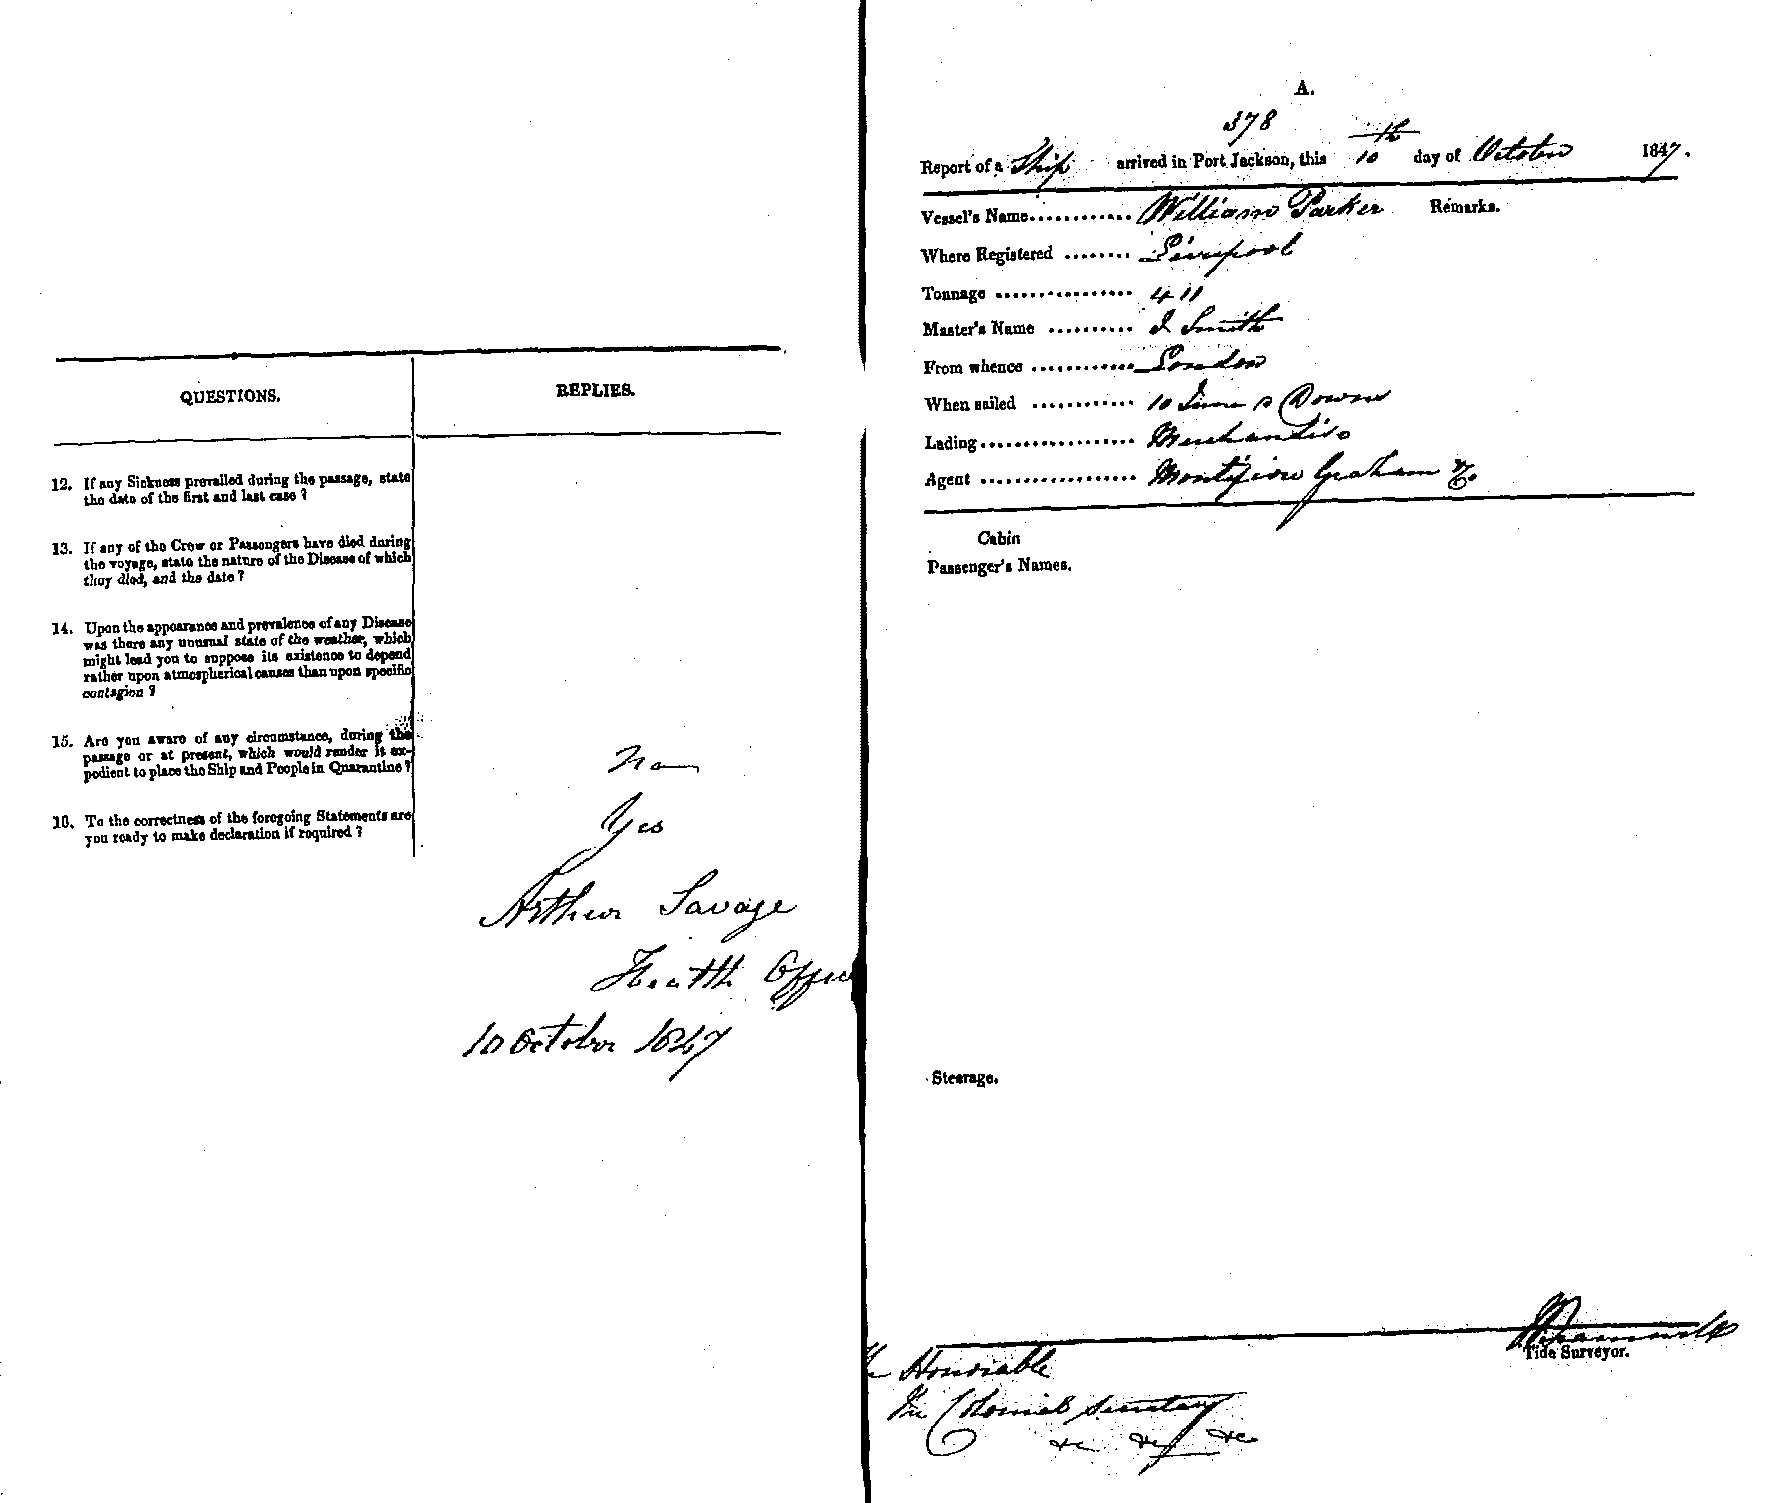 QUESTIONS.
REPLIES.
12. If any Sickness prevailed during the passage, state
the date of the first and last case ?
13. If any of the Crew or Passengers have died during
the voyage, state the nature of the Disease of which
they died, and the date ?
14. Upon the appearance and prevalence of any Disease
was there any unusual state of the weather, which
might lead you to suppose its existence to depend
rather upon atmospherical causes than upon specific
contagion ?
15. Are you aware of any circumstance, during the
passage or at present, which would render it ex-
pedient to place the Ship and People in Quarantine ?
No
16. To the correctness of the foregoing Statements are
you ready to make declaration if required ?
Yes
Arthur Savage
Health Officer
10 October 1847
A.
378
Report of a Ship arrived in Port Jackson, this 10th day of October 1847.
Vessel's Name............ William Parker Remarks.
Where Registered ........ Liverpool
Tonnage ................ 411
Master's Name .......... J Smith
From whence ............ London
When sailed ............ 10 June Downs
Lading.................. Merchandise
Agent .................. Montefiore Graham & Co.
Cabin
Passenger's Names.
Steerage.
Tide Surveyor.
The Honorable
The Colonial Secretary
&c &c &c